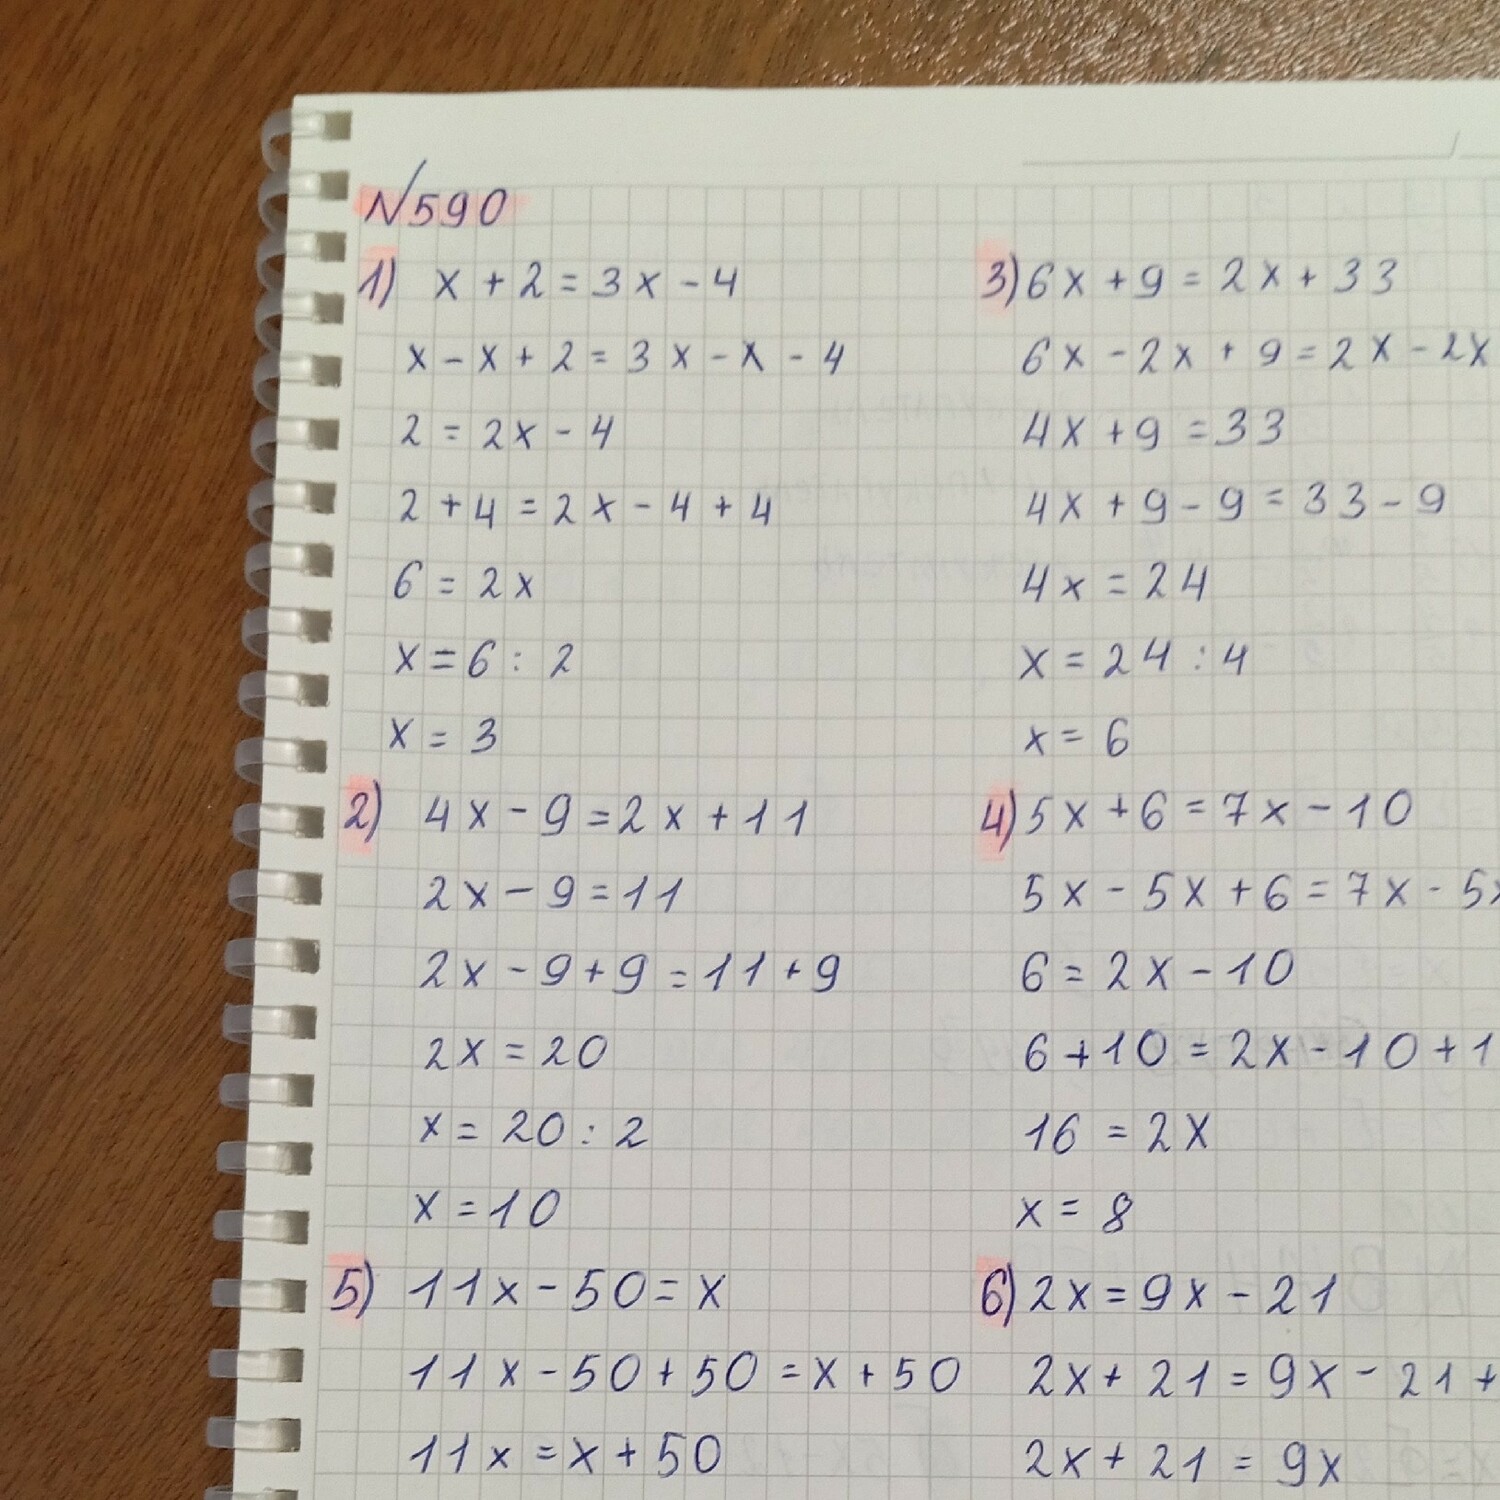 №590
1) x + 2 = 3x - 4
x - x + 2 = 3x - x - 4
2 = 2x - 4
2 + 4 = 2x - 4 + 4
6 = 2x
x = 6 : 2
x = 3
2) 4x - 9 = 2x + 11
2x - 9 = 11
2x - 9 + 9 = 11 + 9
2x = 20
x = 20 : 2
x = 10
5) 11x - 50 = x
11x - 50 + 50 = x + 50
11x = x + 50
3) 6x + 9 = 2x + 33
6x - 2x + 9 = 2x - 2x
4x + 9 = 33
4x + 9 - 9 = 33 - 9
4x = 24
x = 24 : 4
x = 6
4) 5x + 6 = 7x - 10
5x - 5x + 6 = 7x - 5x
6 = 2x - 10
6 + 10 = 2x - 10 + 1
16 = 2x
x = 8
6) 2x = 9x - 21
2x + 21 = 9x - 21 +
2x + 21 = 9x